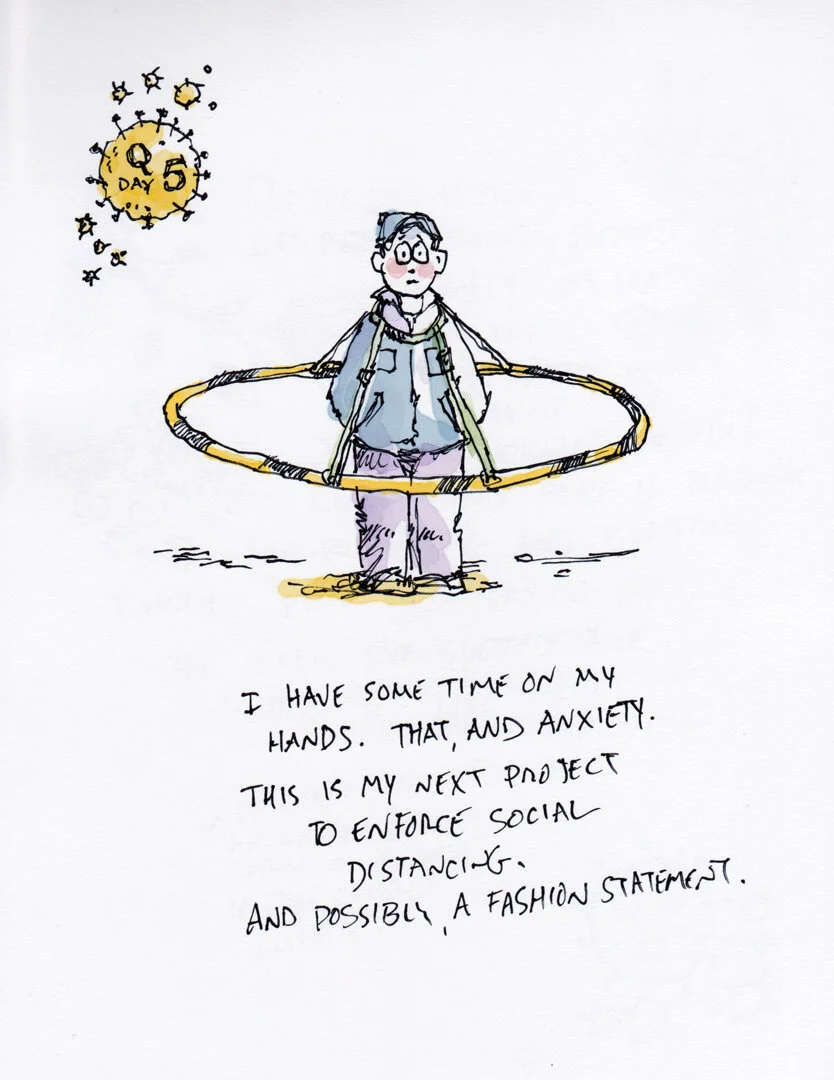 Q
DAY 5
I HAVE SOME TIME ON MY
HANDS. THAT, AND ANXIETY.
THIS IS MY NEXT PROJECT
TO ENFORCE SOCIAL
DISTANCING.
AND POSSIBLY, A FASHION STATEMENT.